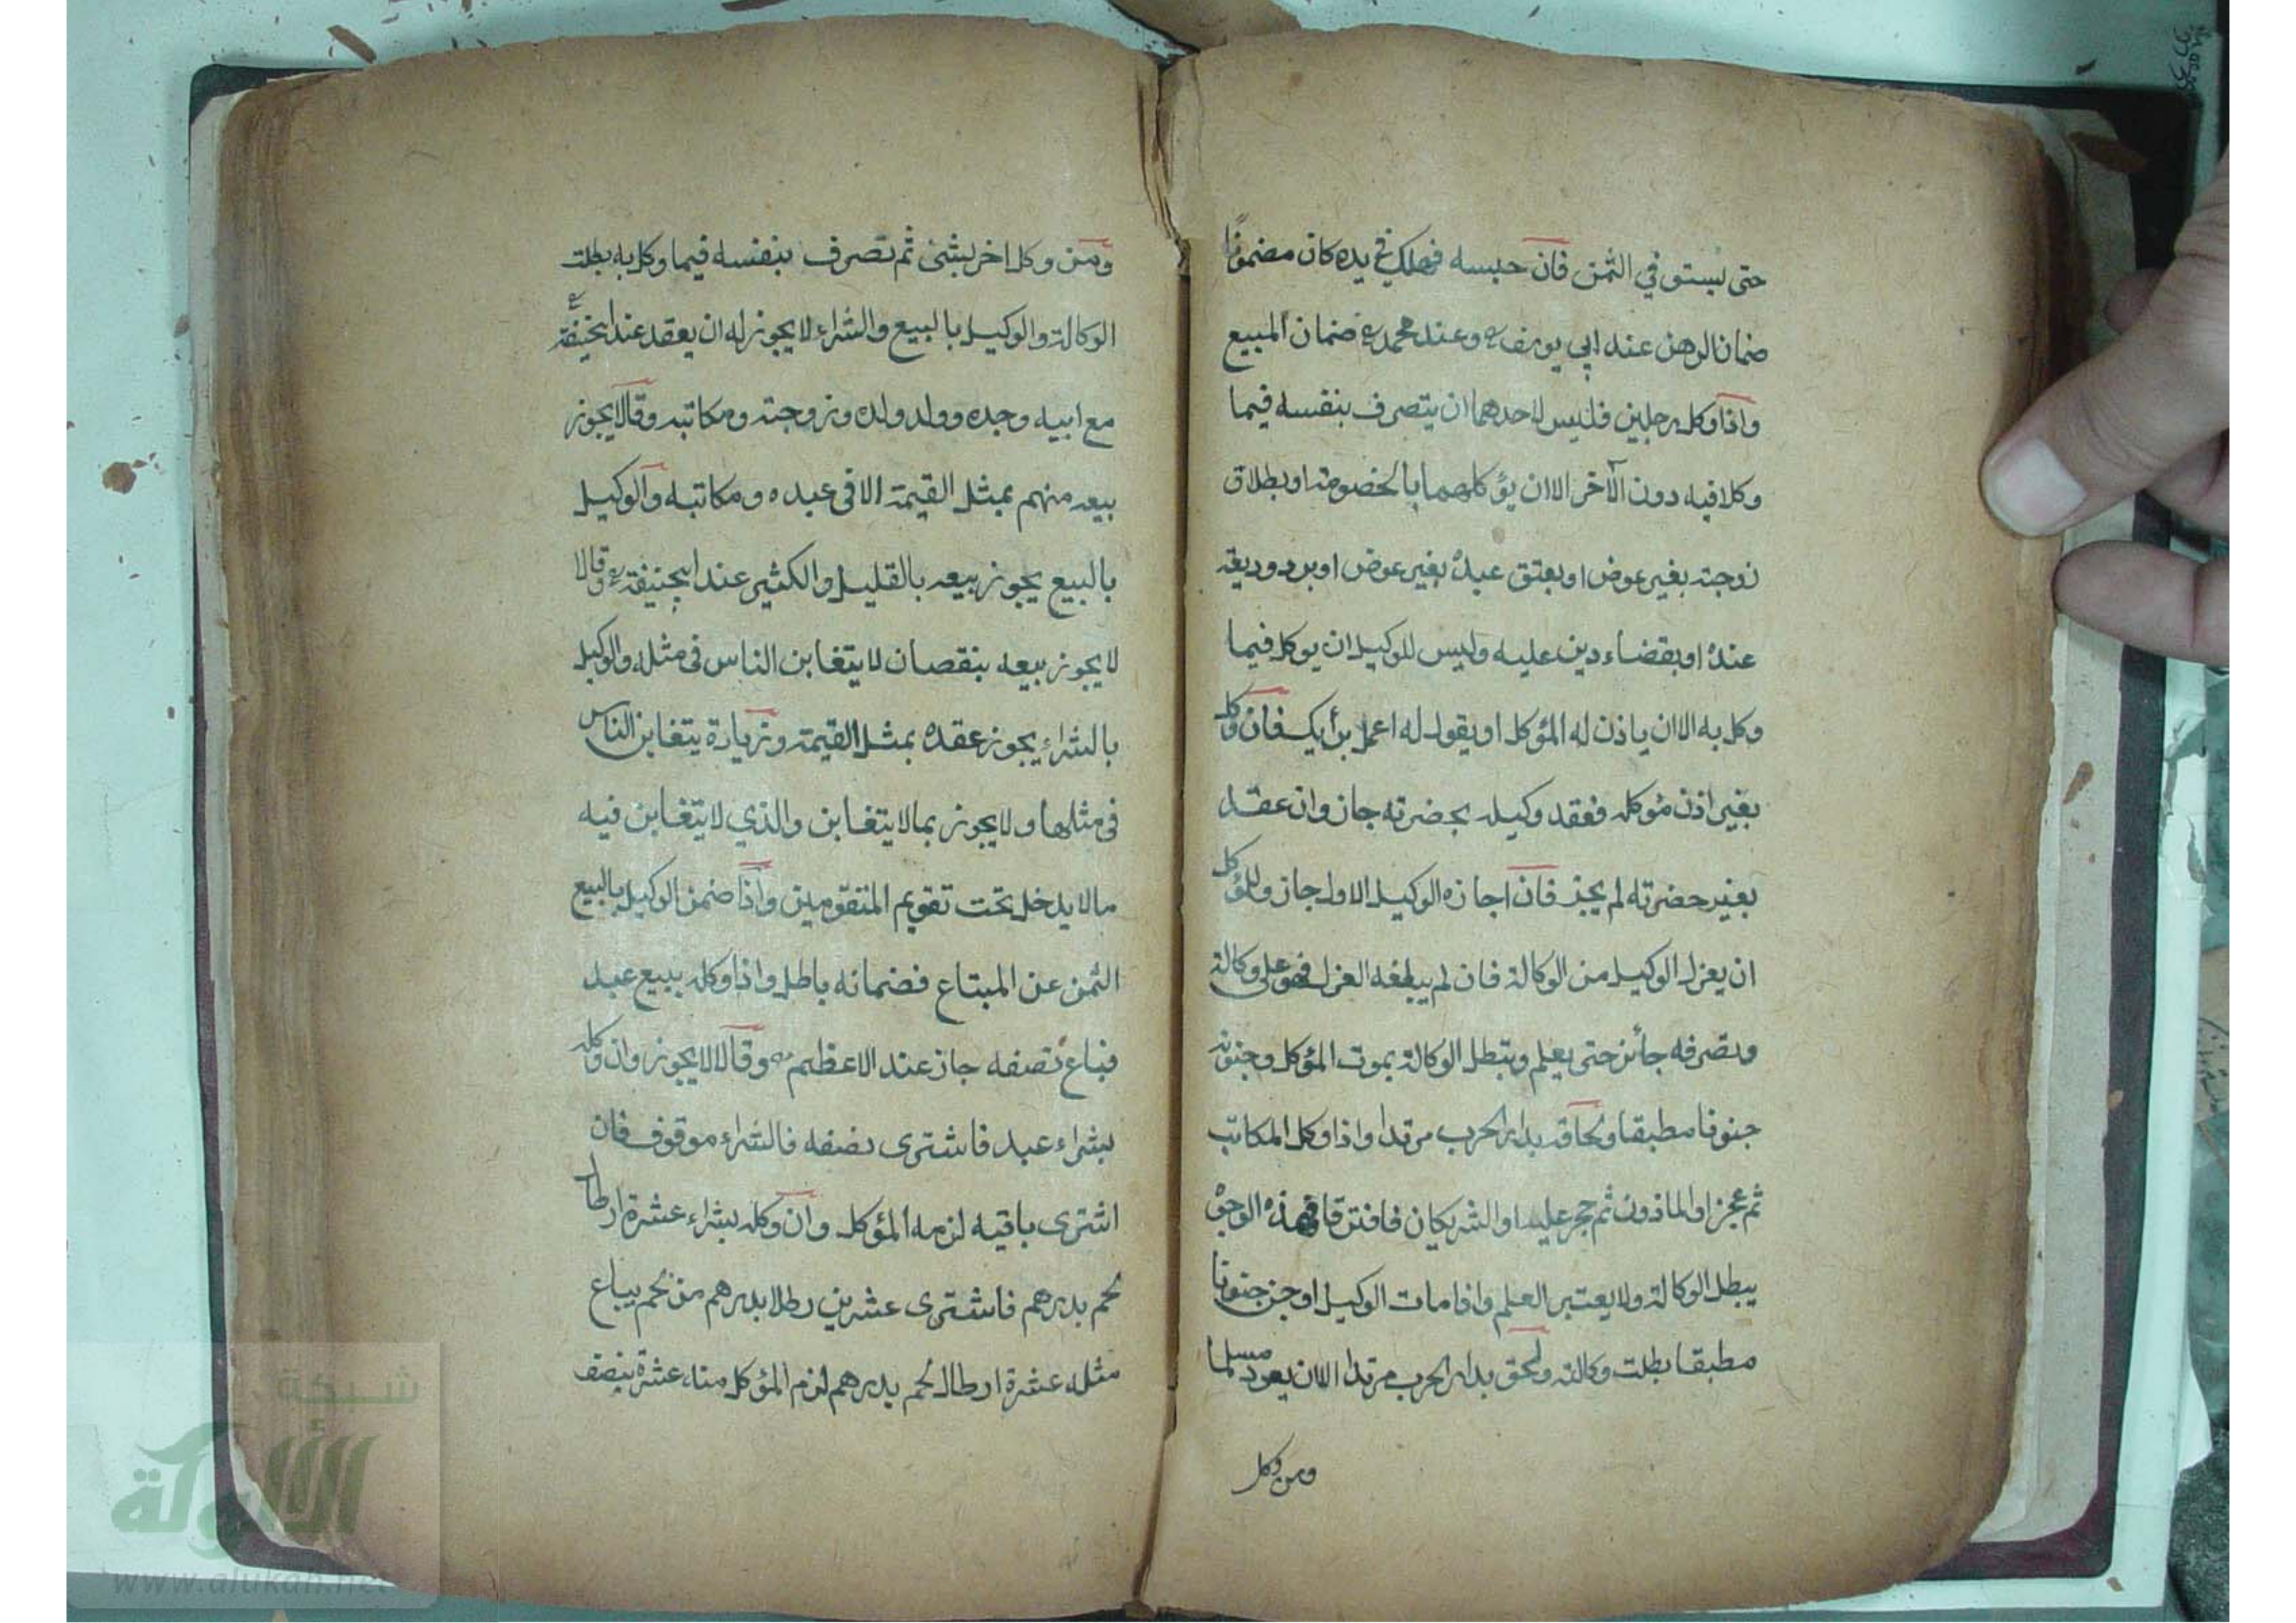 حتى يستوفي الثمن فان حبسه فهلك في يده كان مضمونًا
ضمان الرهن عند ابي يوسف وعند محمد ضمان المبيع
واذا وكل رجلين فليس لاحدهما ان يتصرف بنفسه فيما
وكلا فيه دون الآخر الا ان يؤكلهما بالخصومة او بطلاق
زوجته بغير عوض او بعتق عبده بغير عوض او برد وديعة
عنده او بقضاء دين عليه وليس للوكيل ان يوكل فيما
وكل به الا ان ياذن له المؤكل او يقول له اعمل برأيك فان وكل
بغير اذن مؤكله فعقد وكيله بحضرته جاز وان عقد
بغير حضرته لم يجز فان اجازه الوكيل الاول جاز وللمؤكل
ان يعزل الوكيل من الوكالة فان لم يبلغه العزل فهو على وكالته
وتصرفه جائز حتى يعلم وبتطل الوكالة بموت المؤكل وجنونه
جنونا مطبقا ولحاقه بدار الحرب مرتدا واذا وكل المكاتب
ثم عجز او الماذون ثم حجر عليه او الشريكان فافترقا فهذه الوجوه
يبطل الوكالة ولا يعتبر العلم واذا مات الوكيل او جن جنونا
مطبقا بطلت وكالته ولحق بدار الحرب مرتدا الا ان يعود مسلما
ومن وكل
ومن وكل اخر بشئ ثم تصرف بنفسه فيما وكل به بطلت
الوكالة والوكيل بالبيع والشراء لا يجوز له ان يعقد عند ابيحنيفة
مع ابيه وجده وولد ولده وزوجته ومكاتبه وقالا يجوز
بيعه منهم بمثل القيمة الا في عبده ومكاتبه والوكيل
بالبيع يجوز بيعه بالقليل والكثير عند ابيحنيفة وقالا
لا يجوز بيعه بنقصان لا يتغابن الناس في مثله والوكيل
بالشراء يجوز عقده بمثل القيمة وزيادة يتغابن الناس
في مثلها ولا يجوز بما لا يتغابن والذي لا يتغابن فيه
مالا يدخل تحت تقويم المتقومين واذا ضمن الوكيل بالبيع
الثمن عن المبتاع فضمانه باطل واذا وكله ببيع عبد
فباع نصفه جاز عند الاعظم وقالا لا يجوز وان وكله
بشراء عبد فاشترى نصفه فالشراء موقوف فان
اشترى باقيه لزمه المؤكل وان وكله بشراء عشرة ارطال
لحم بدرهم فاشترى عشرين رطلا بدرهم من لحم يباع
مثله عشرة ارطال لحم بدرهم لزم المؤكل منا عشرة بنصف
شبكة
الألوكة
www.alukah.net